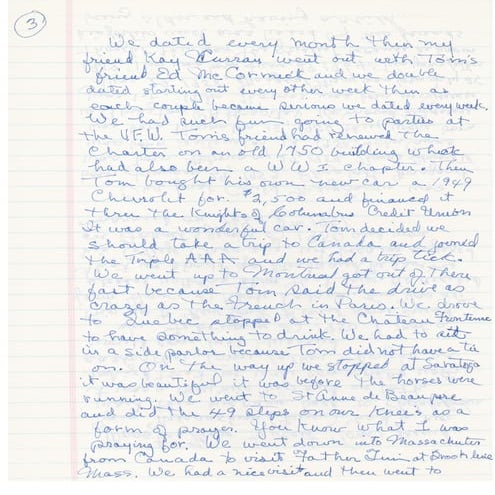 3
We dated every month then my
friend Kay Curran went out with Tom's
friend Ed McCormick and we double
dated starting out every other week then as
each couple became serious we dated every week.
We had such fun going to parties at
the V.F.W. Toms friend had renewed the
Charter on an old 1750 building which
had also been a WWI chapter. Then
Tom bought his own new car a 1949
Chevrolet for $2,500 and financed it
thru the Knights of Columbus Credit Union
It was a wonderful car. Tom decided we
should take a trip to Canada and joined
the Triple AAA and we had a trip tick.
We went up to Montreal got out of there
fast because Tom said the drive as
crazy as the French in Paris. We drove
to Quebec stopped at the Château Frontenac
to have something to drink. We had to sit
in a side parlor because Tom did not have a tie
on. On the way up we stopped at Saratoga
it was beautiful it was before the horses were
running. We went to St Anne de Beaupre
and did the 49 steps on our knees as a
form of prayer. You know what I was
praying for. We went down into Massachusetts
from Canada to visit Father Jim at Brookline
Mass. We had a nice visit and then went to